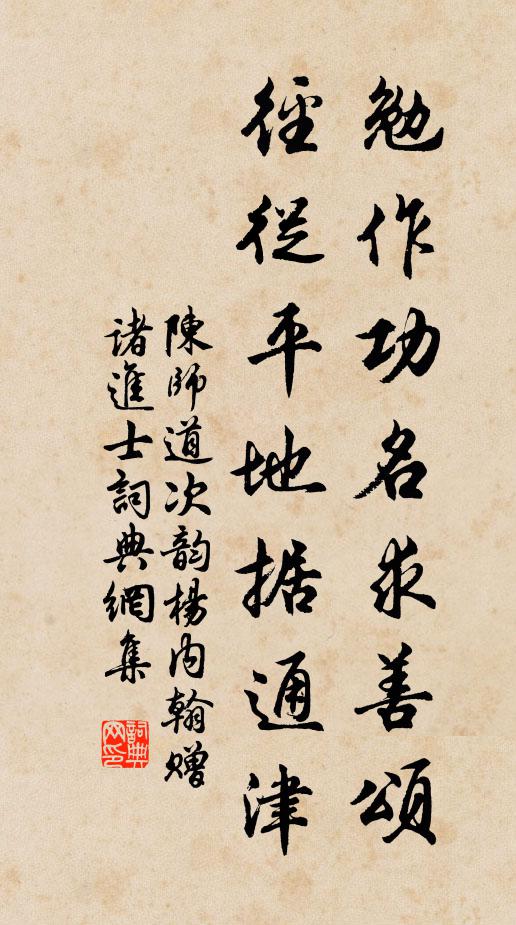 勉作功名求善頌
徑從平地据通津
陳師道次韵楊内翰赠
诸進士詞典網集
詞典网印